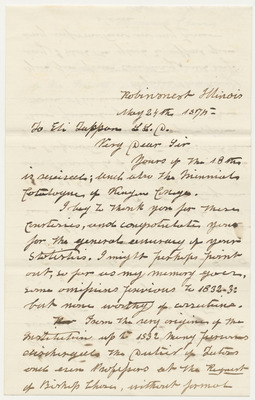 Robinsnest Illinois
May 24th 1875
To Eli Tappan L.L.D.
Very Dear Sir
Yours of the 18th
is received; and also the Triennial
Catalogue of Kenyon College.
I beg to thank you for these
courtesies, and congratulate you
for the general accuracy of your
Statistics. I might perhaps point
out, so far as my memory goes,
some omissions previous to 1832-33
but none worthy of
From the very origin of the
Institution up to 1832 many persons
discharged the Duties of Tutors
and even Professors at the Request
of Bishop Chase, without formal